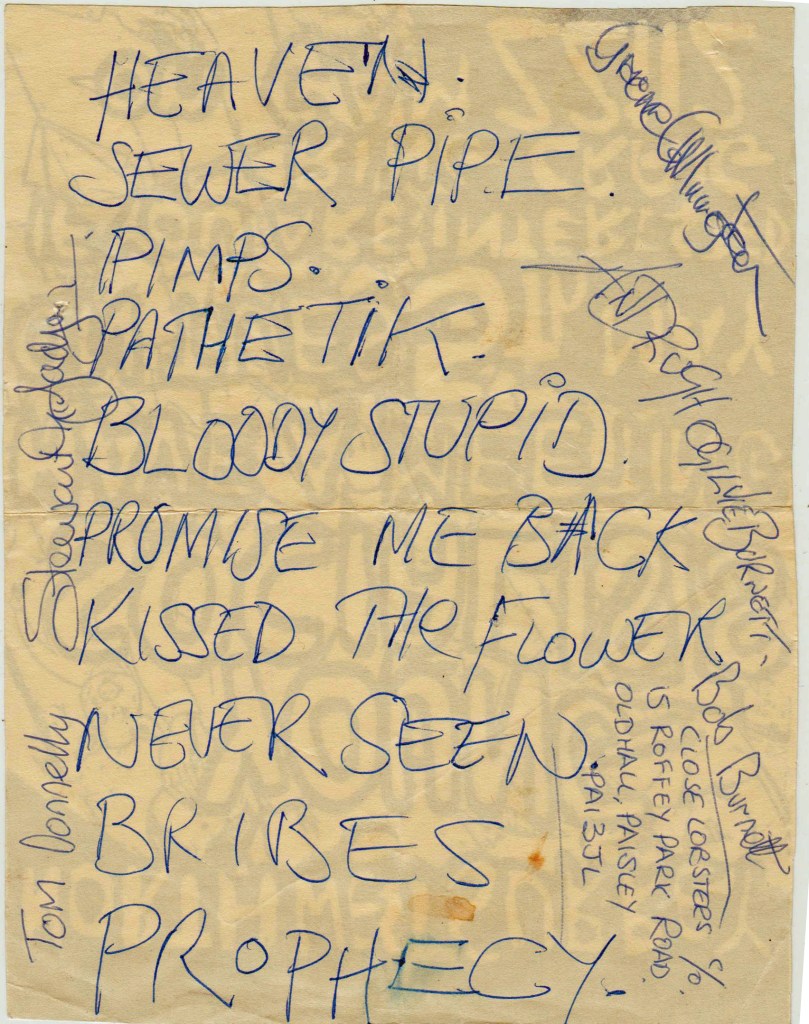 HEAVEN.
SEWER PIPE.
PIMPS.
PATHETIK.
BLOODY STUPID.
PROMISE ME BACK
KISSED THE FLOWER
NEVER SEEN.
BRIBES
PROPHECY.
Tom Donnelly
Stewart
OGILVIE BURNETT.
Bob Burnett
CLOSE LOBSTERS C/O.
15 ROFFEY PARK ROAD
OLDHALL, PAISLEY
PA1 3JL